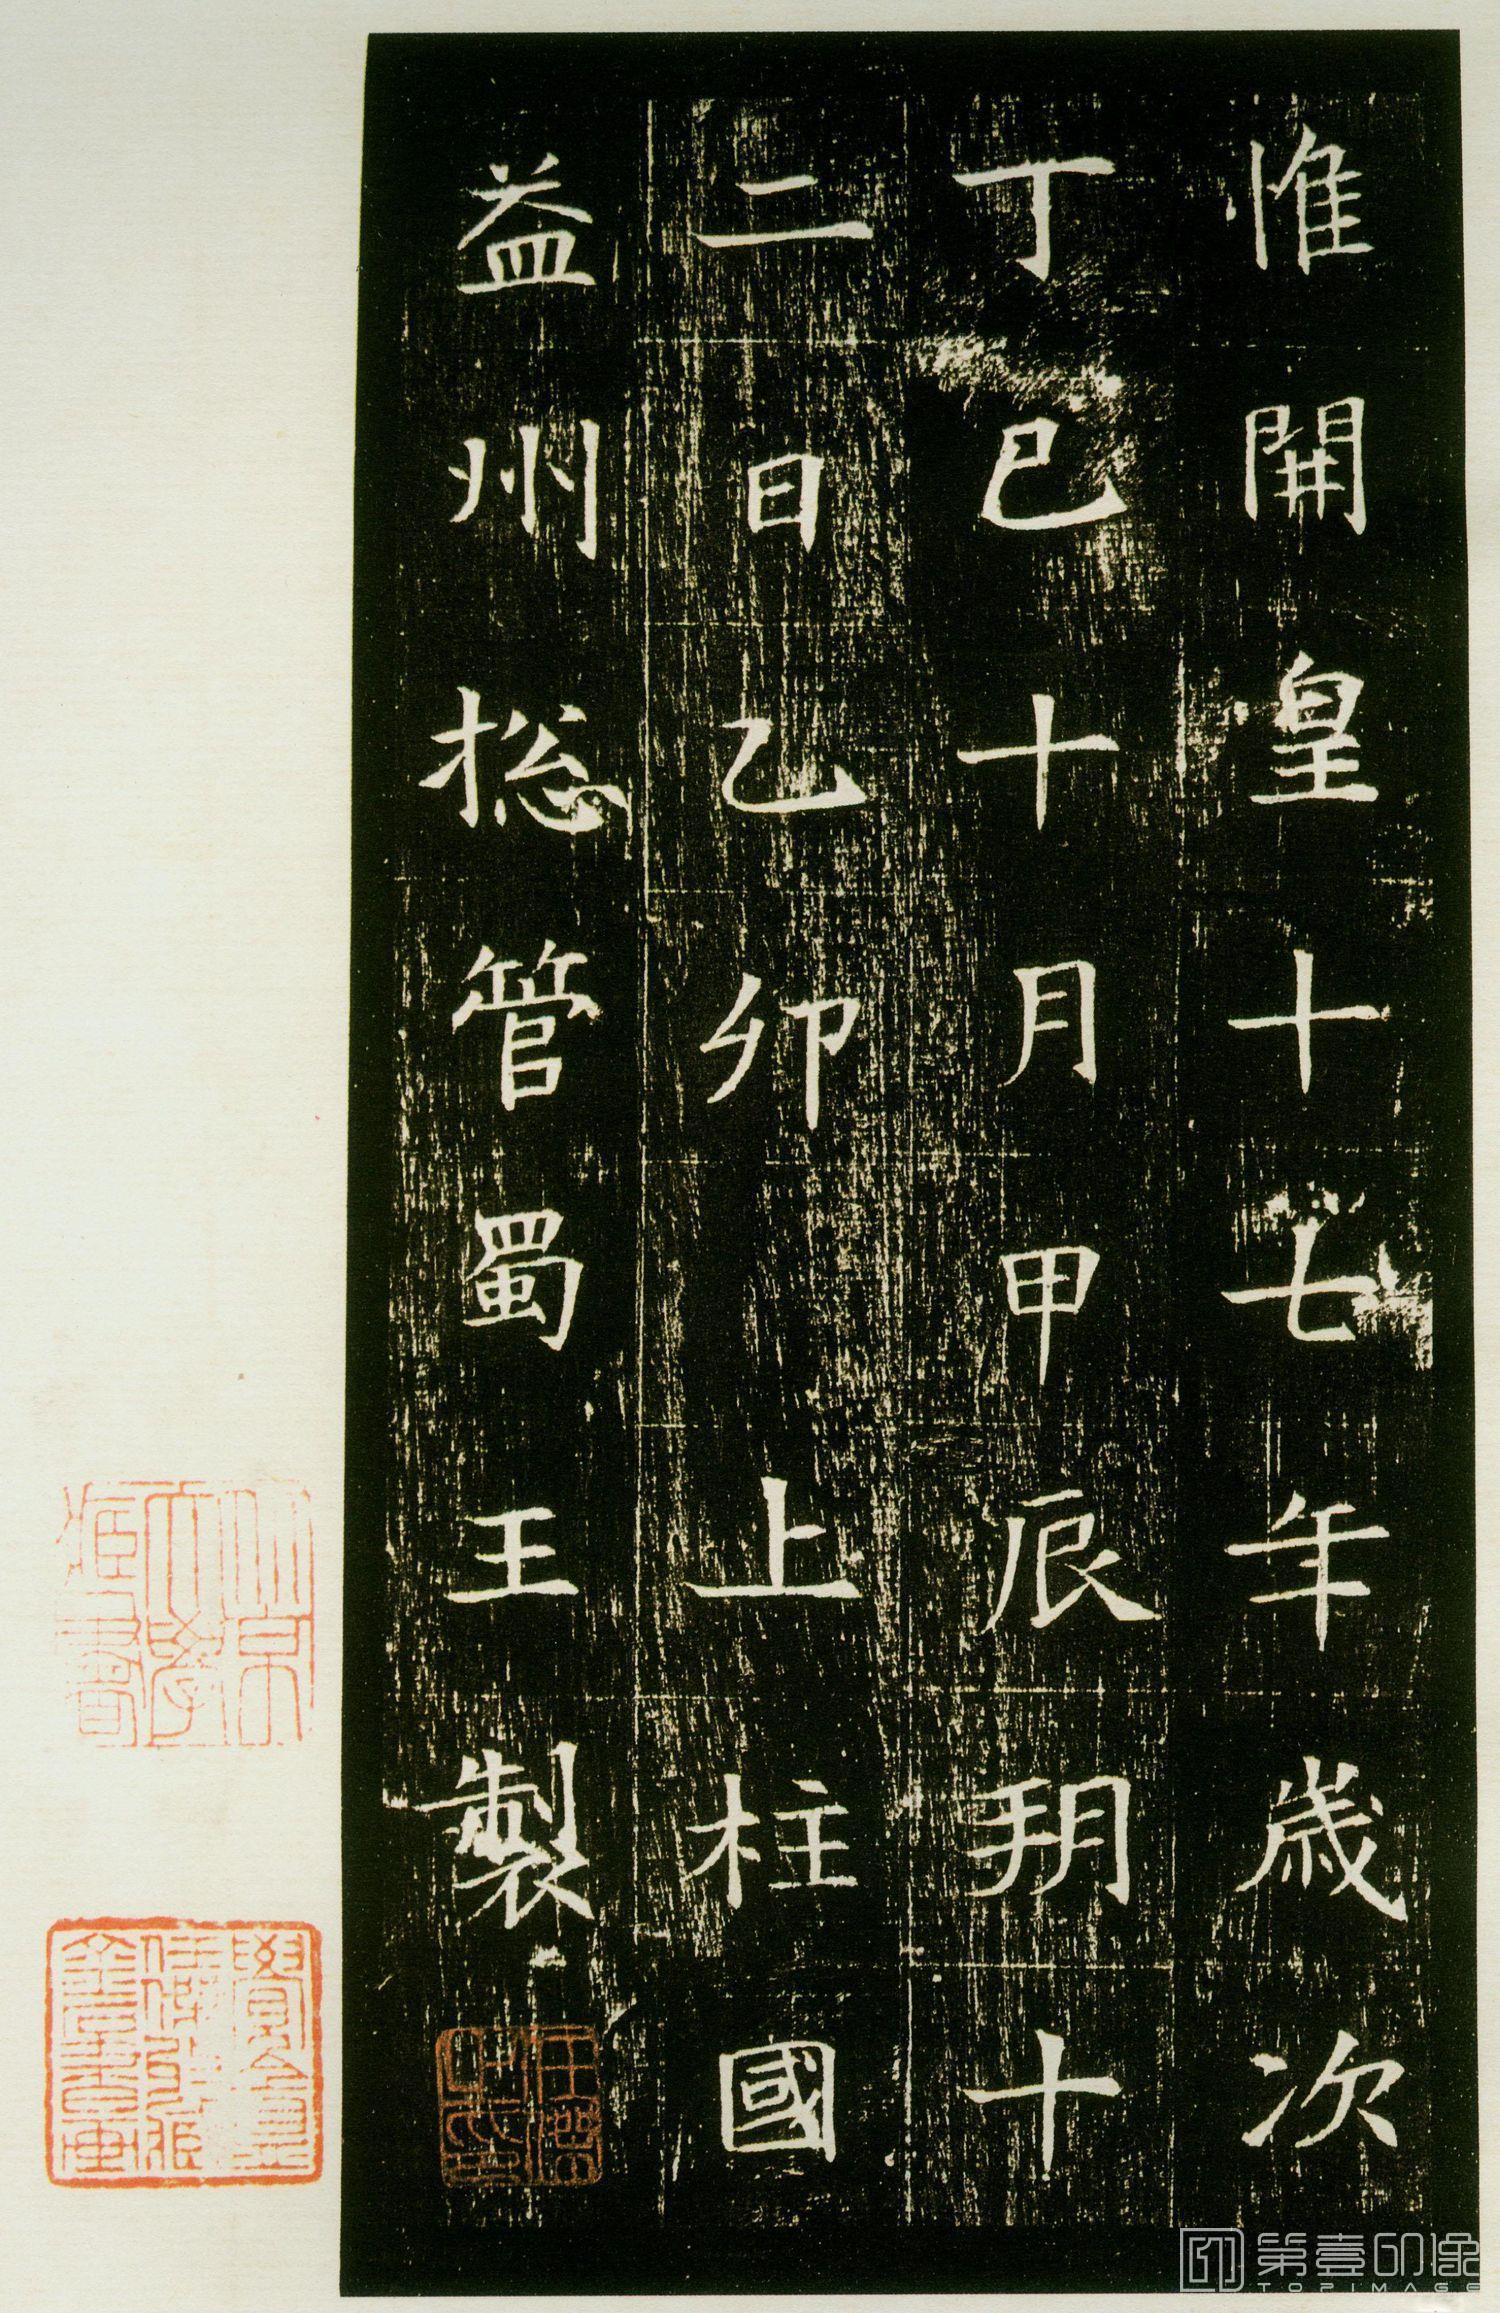 惟開皇十七年歲次
丁巳十月甲辰朔十
二日乙卯上柱國
益州総管蜀王製
燕京大學圖書
第壹印像
TOPIMAGE